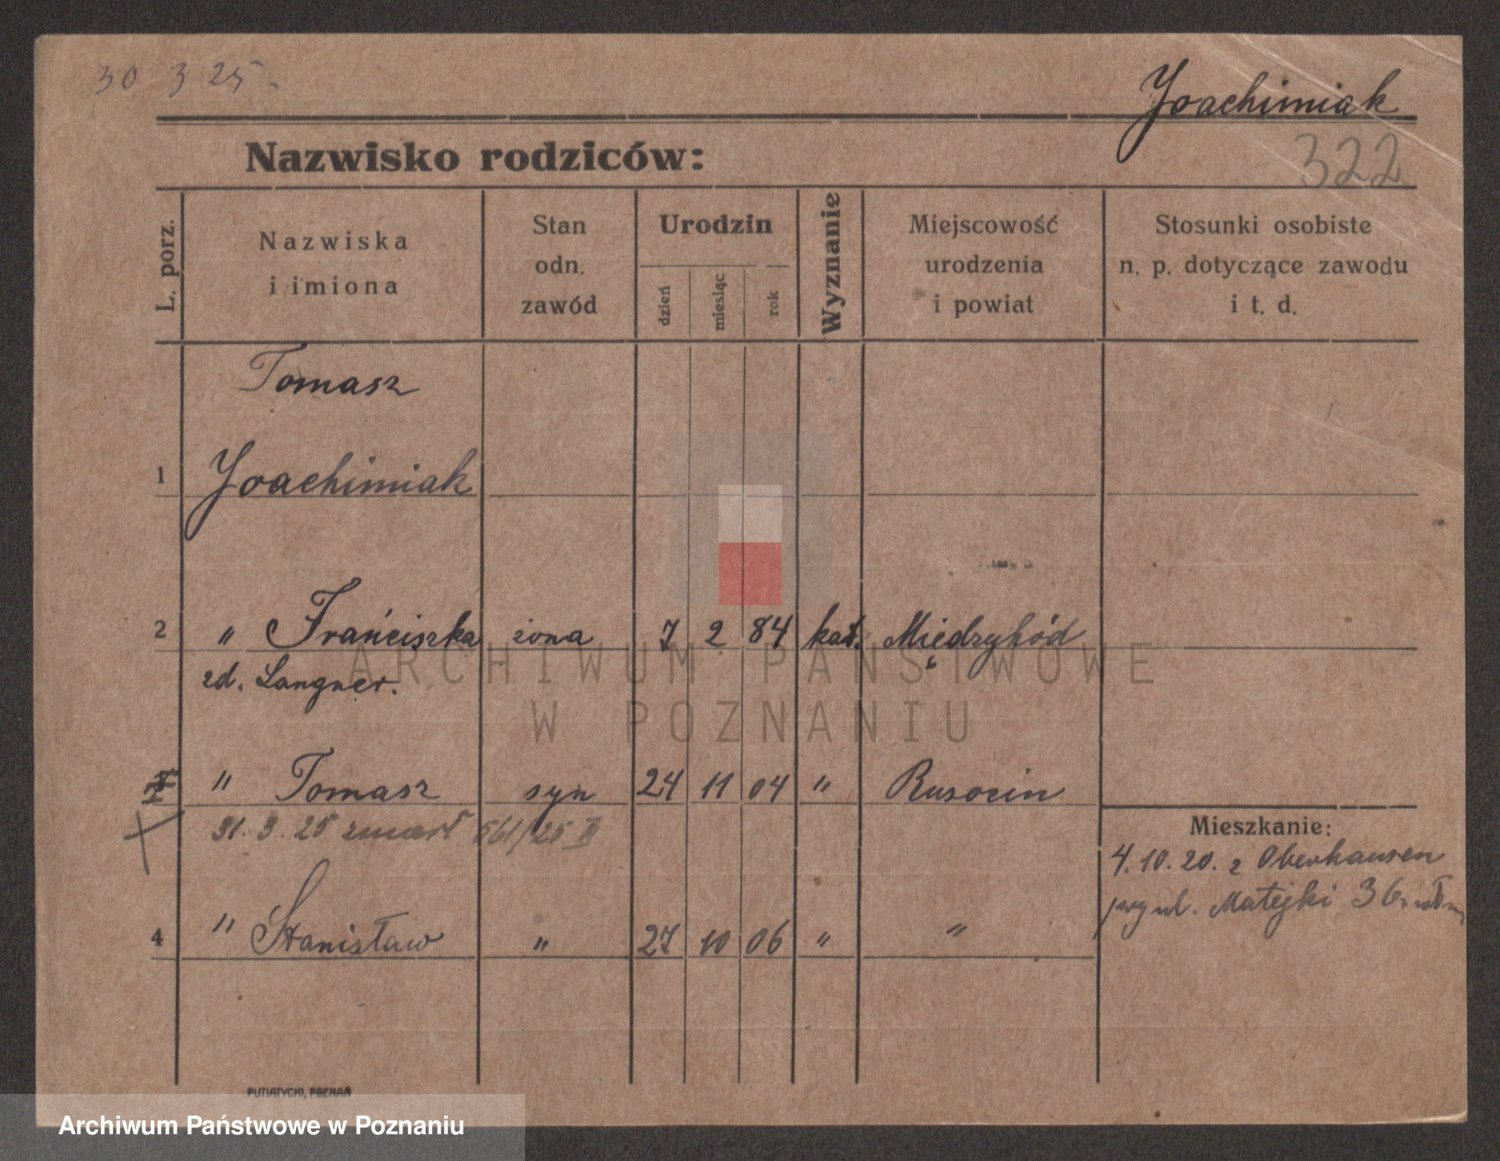 30 3 25.
Joachimiak
322
Nazwisko rodziców:
L. porz.
Nazwiska
i imiona
Stan
odn.
zawód
Urodzin
dzień
miesiąc
rok
Wyznanie
Miejscowość
urodzenia
i powiat
Stosunki osobiste
n. p. dotyczące zawodu
i t. d.
Tomasz
1 Joachimiak
2 " Frańciszka żona 7 2 84 kat. Międzyhód
zd. Langner.
" Tomasz syn 24 11 04 " Rusocin
31. 3. 25 zmarł 561/25 III
4 " Stanisław " 27 10 06 " "
Mieszkanie:
4. 10. 20. z Oberhausen
przy ul. Matejki 36
ARCHIWUM PAŃSTWOWE
W POZNANIU
PUTIATYCKI, POZNAŃ
Archiwum Państwowe w Poznaniu